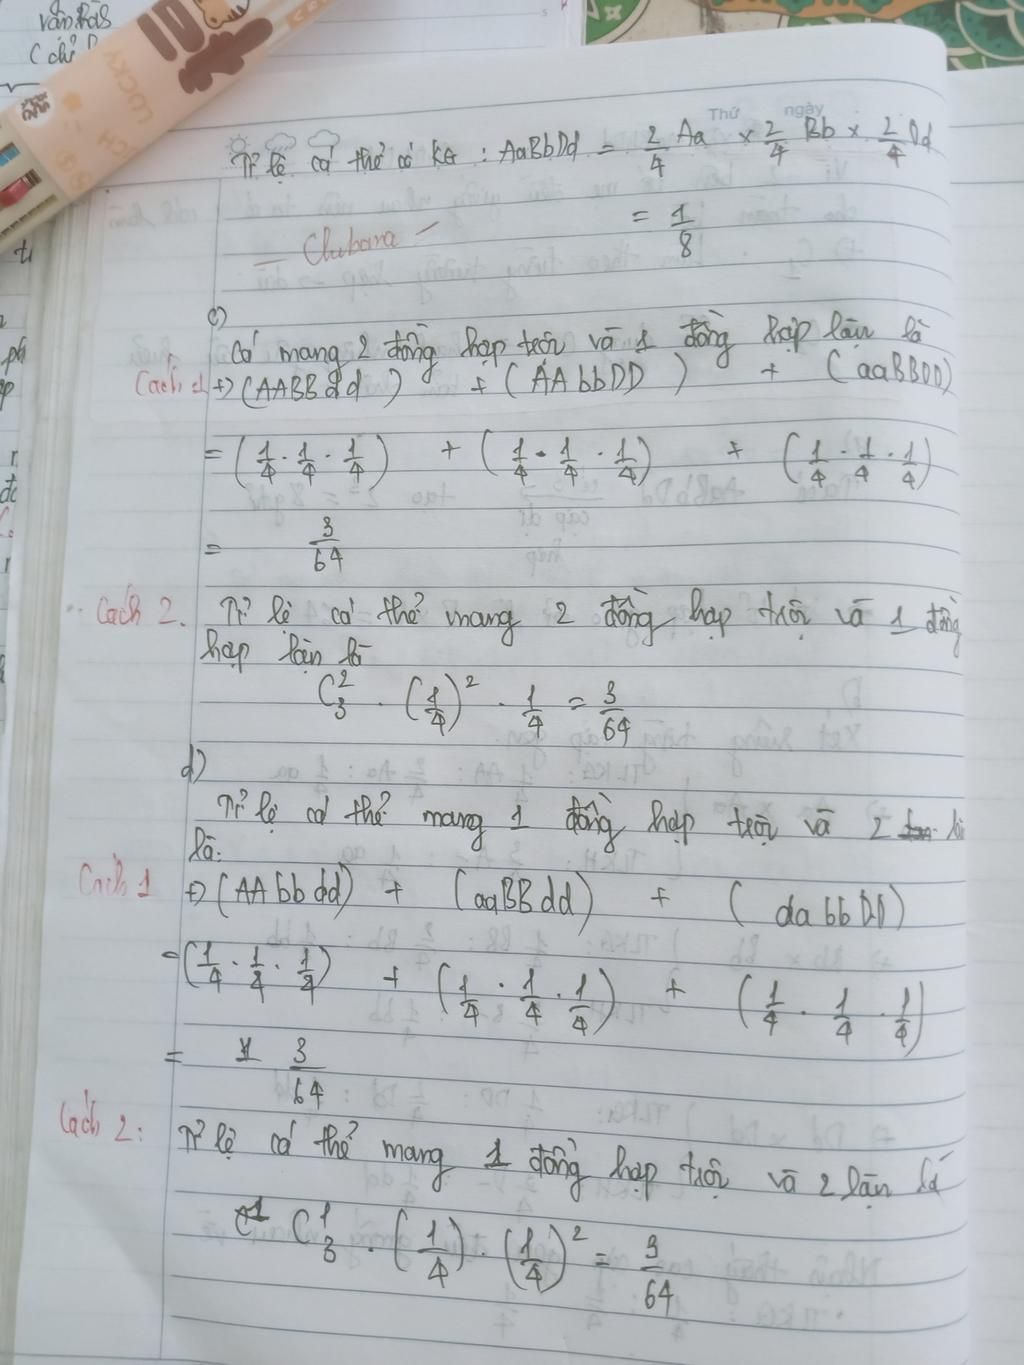 văn hàs
LUCKY
Thứ ngày
Tỉ lệ cá thể có KG : AaBbDd = 2/4 Aa × 2/4 Bb × 2/4 Dd
= 1/8
c)
Cá mang 2 đồng hợp trội và 1 đồng hợp lặn là
Cách 1 => (AABBdd) + (AAbbDD) + (aaBBDD)
= (1/4 . 1/4 . 1/4) + (1/4 . 1/4 . 1/4) + (1/4 . 1/4 . 1/4)
= 3/64
Cách 2. Tỉ lệ cá thể mang 2 đồng hợp trội và 1 đồng
hợp lặn là
C₃² . (1/4)² . 1/4 = 3/64
d)
Tỉ lệ cá thể mang 1 đồng hợp trội và 2
là:
Cách 1 => (AAbbdd) + (aaBBdd) + (aabbDD)
= (1/4 . 1/4 . 1/4) + (1/4 . 1/4 . 1/4) + (1/4 . 1/4 . 1/4)
= 3/64
Cách 2: Tỉ lệ cá thể mang 1 đồng hợp trội và 2 lặn là
C₃¹ . (1/4) . (1/4)² = 3/64